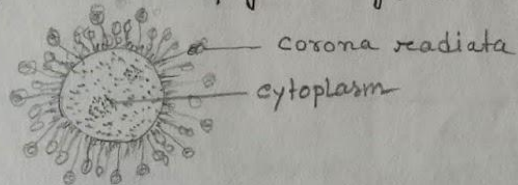 corona readiata
cytoplasm